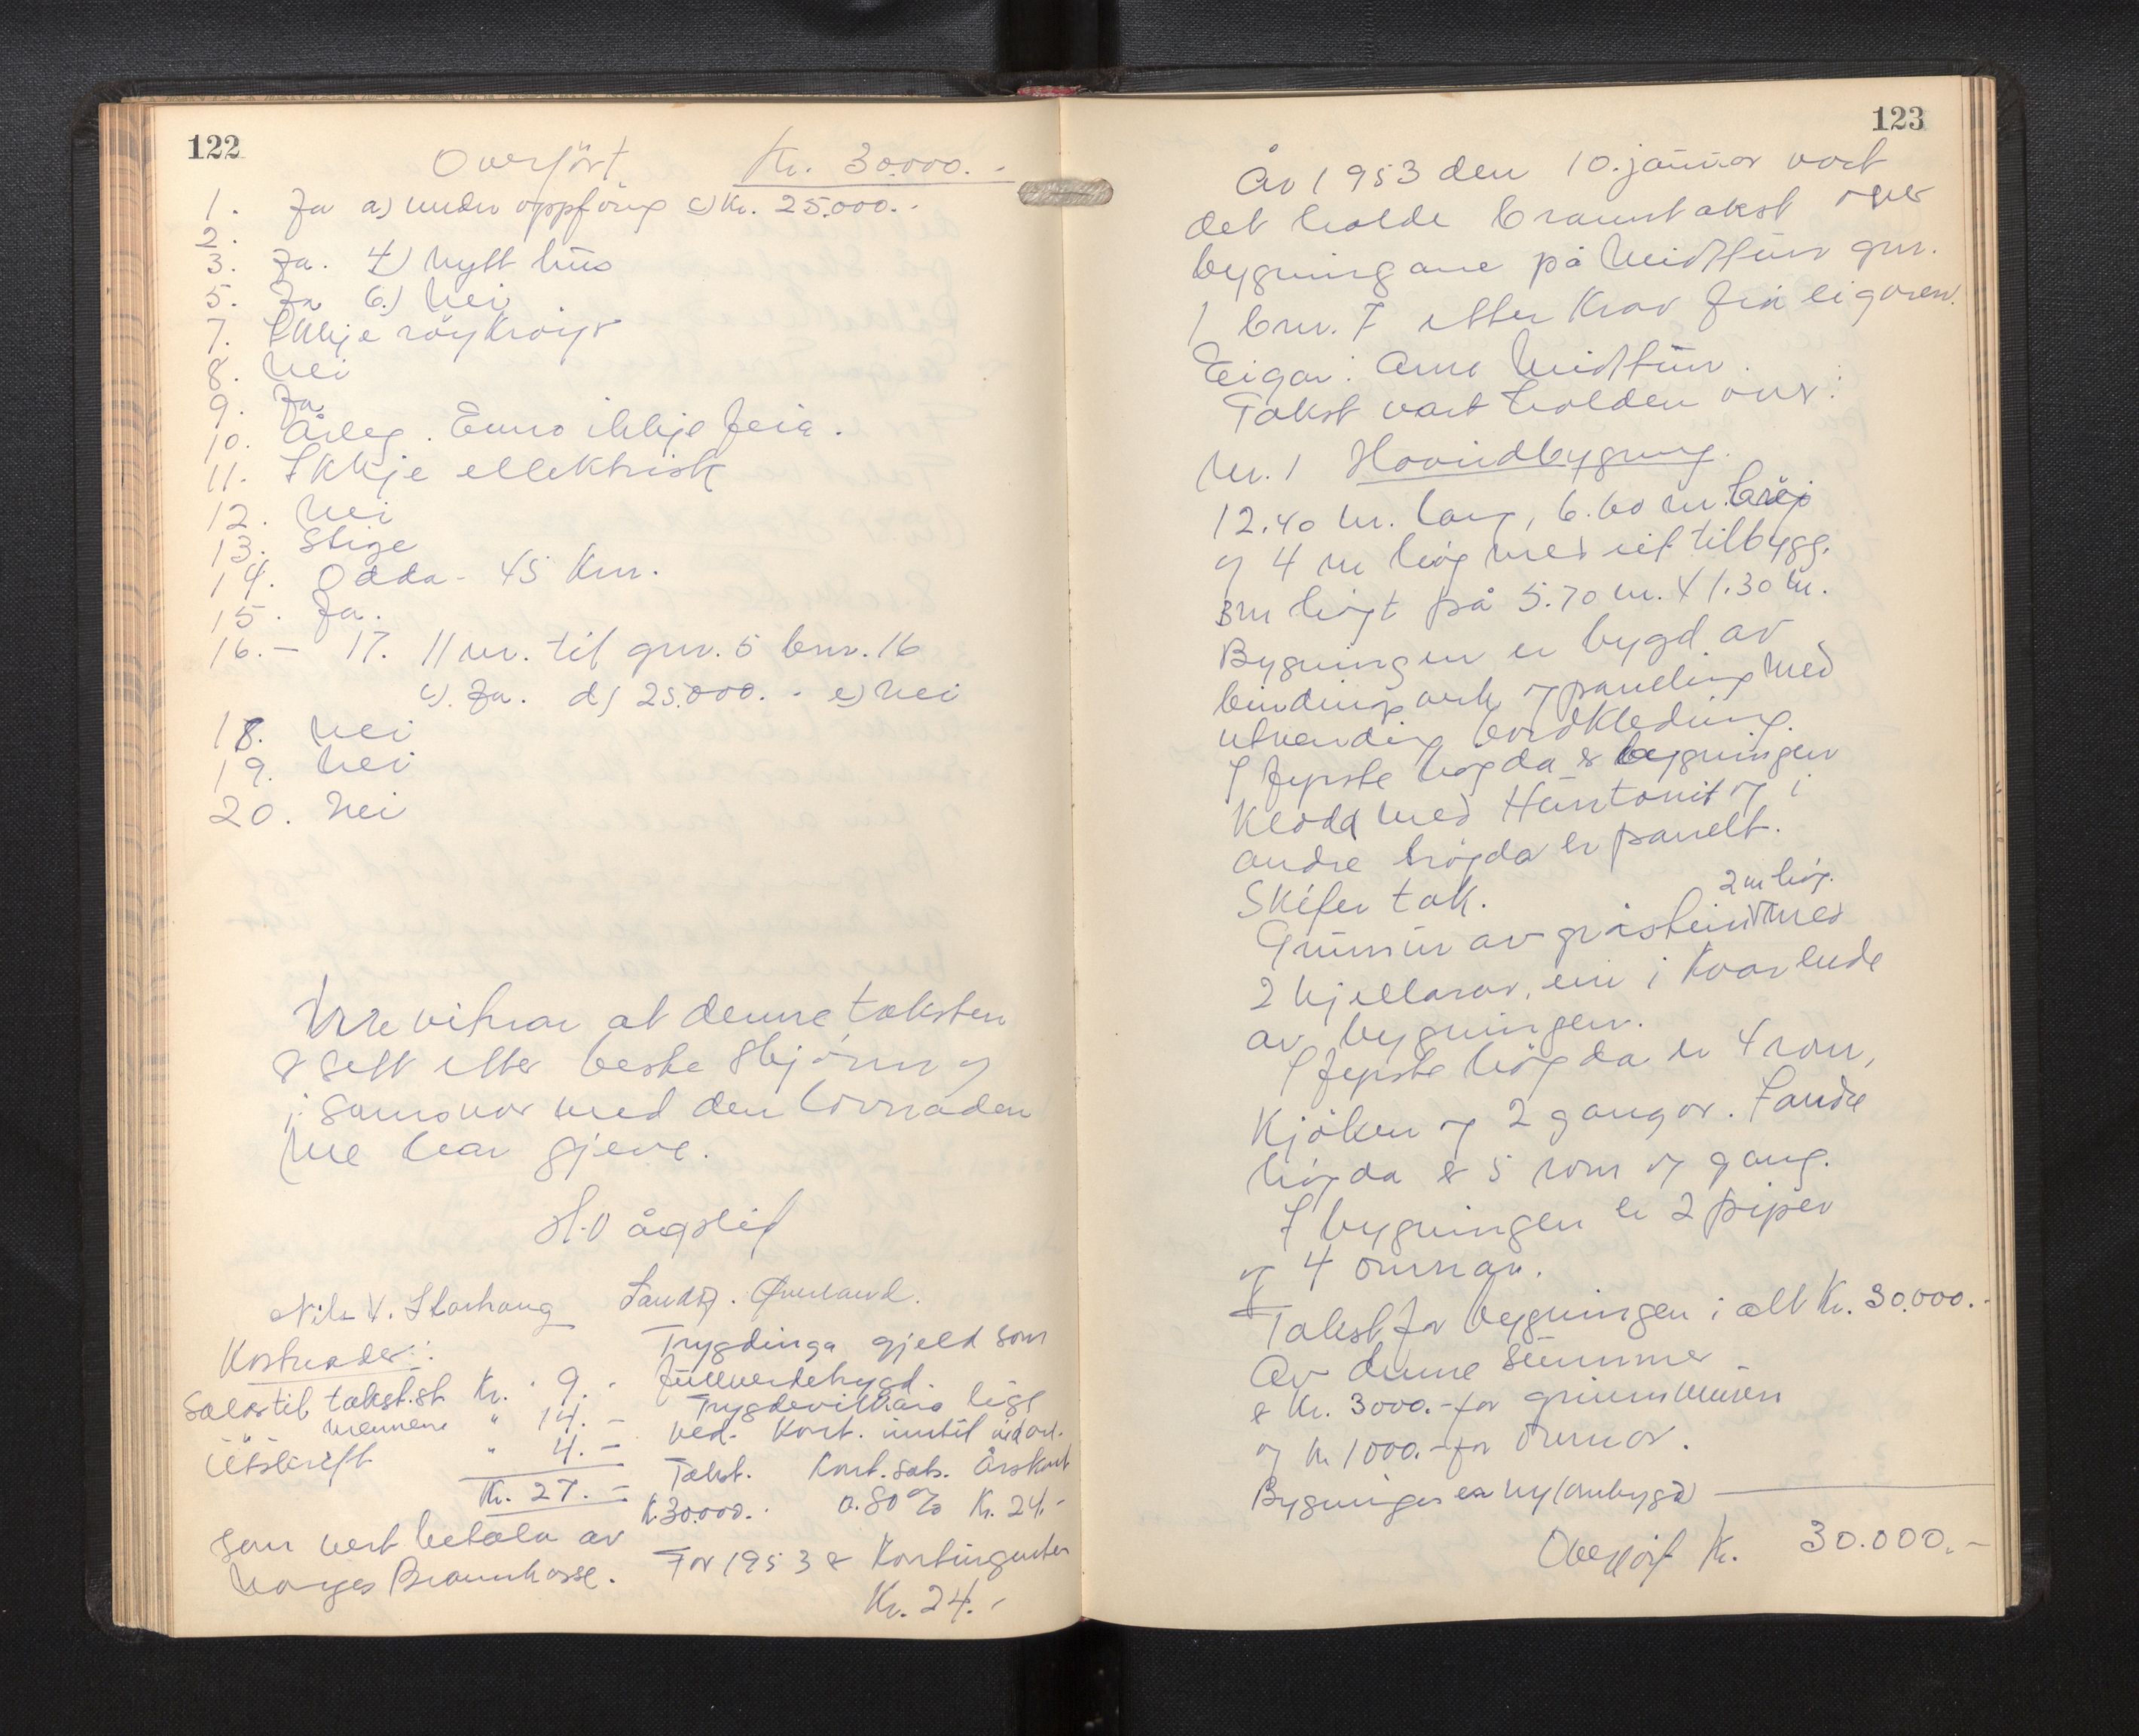 122
Overført Kr. 30.000.-
1. Ja a) under oppføring c) Kr. 25.000.-
2.
3. Ja. 4) Nytt hus
5. Ja 6.) Nei
7. Ikkje röykröyr
8. Nei
9. Ja
10. Årleg. Enno ikkje feia.
11. Ikkje ellektrisk
12. Nei
13. Stige
14. Odda - 45 km.
15. Ja.
16. - 17. 11 m. til gnr. 5 bnr. 16
c). Ja. d) 25.000.- e) Nei
18. Nei
19. Nei
20. Nei
Me vitnar at denne taksten
er sett etter beste skjönn og
i samsvar med den lovnaden
me har gjeve.
H. Vågslid
Nils V. Storhaug
Kostnader:
Salær til takst.st. Kr. 9.-
" " mennene " 14.-
Utskrift " 4.-
Kr. 27.-
som vert betala av
Norges Brannkasse.
Trygdinga gjeld som
fullverdetrygd.
Trygdevilkåra
ved. Kont. inntil vidare.
Takst. Kont.sats. Årskont
Kr. 30.000.- 0.80 ‰ Kr. 24.-
For 1953 er Kontingenten
Kr. 24.-
123
År 1953 den 10. januar vart
det halde branntakst over
bygningane på Midttun gnr.
1 bnr. 7 etter krav frå eigaren.
Eigar: Arne Midttun.
Takst vart halden over:
Nr. 1 Hovudbygning.
12.40 m. lang, 6.60 m. brei
og 4 m høg med eit tilbygg.
3m högt på 5.70 m. x 1.30 m.
Bygningen er bygd av
bindingverk og paneling med
utvendig bordkledning.
I fyrste högda er bygningen
kledd med Huntonit og i
andre högda er panelt.
Skifer tak.
2 m høg.
Grunnmur av gråstein med
2 kjellarar, ein i kvar ende
av bygningen.
I fyrste högda er 4 rom,
Kjöken og 2 gangar. I andre
högda er 5 rom og gang.
I bygningen er 2 piper
og 4 omnar.
Takst for bygningen i alt Kr. 30.000.-
Av denne summer
er Kr. 3000.- for grunnmuren
og Kr 1000.- for omnar.
Bygningen er ny (ombygd)
Overført Kr. 30.000.-